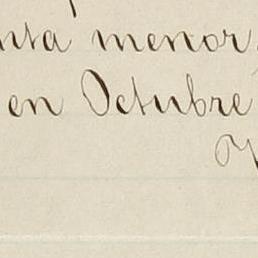 menor
en Octubre